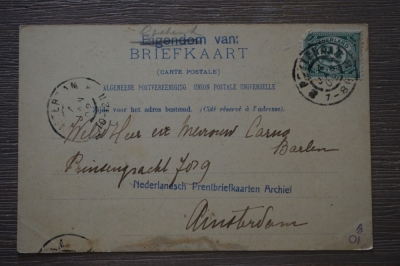 Eigendom van:
BRIEFKAART
(CARTE POSTALE)
ALGEMEENE POSTVEREENIGING UNION POSTALE UNIVERSELLE
voor het adres bestemd. (Côté réservé à l'adresse).
Heer en Mevrouw
Prinsengracht 709
Nederlandsch Prentbriefkaarten Archief
Amsterdam